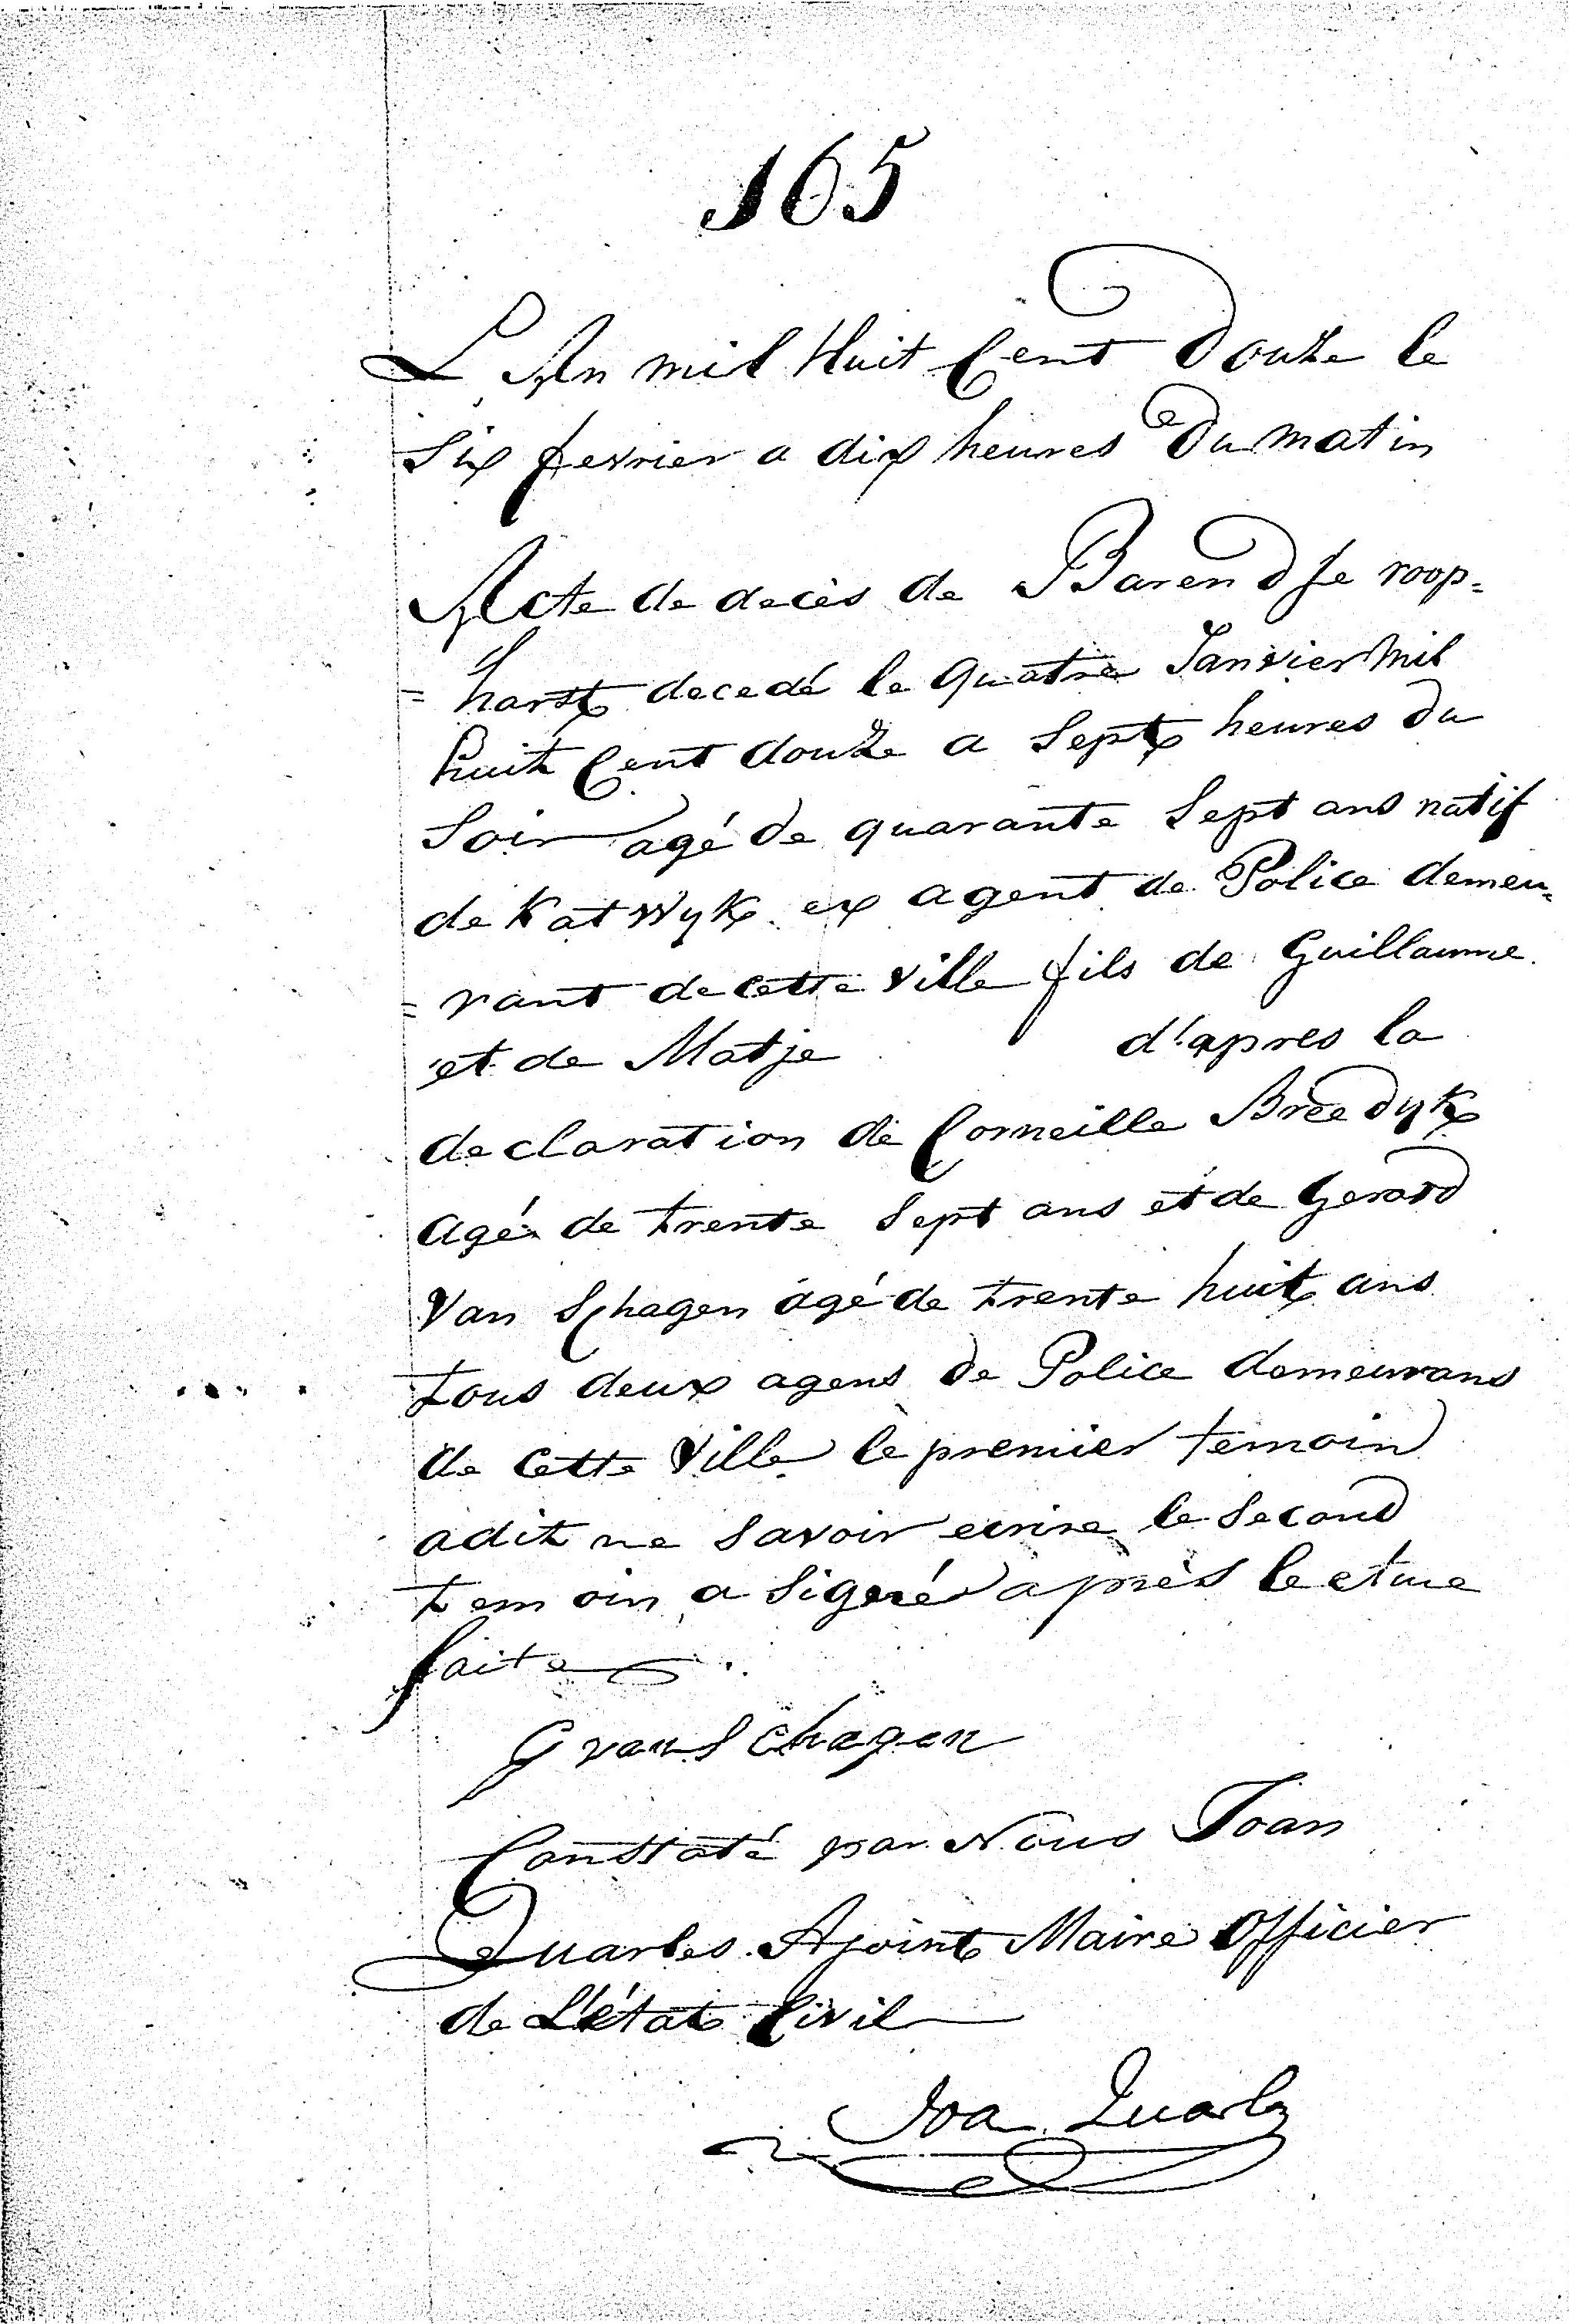 165
L An mil Huit Cent Douze le
Six fevrier a dix heures Du matin
Acte de decès de Barend Je roop=
= harst decedé le Quatre Janvier Mil
huit Cent douze a Sept heures du
Soir agé de quarante Sept ans natif
de Katwyk ex agent de Police demeu=
= rant de cette ville fils de Guillaume
et de Matje d'apres la
declaration de Corneille Breedyk
agé de trente Sept ans et de Gerard
Van Schagen agé de trente huit ans
tous deux agens de Police demeurans
de Cette Ville le premier temoin
a dit ne Savoir ecrire le Second
temoin a Signé après lecture
faite
G van Schagen
Constaté par Nous Joan
Quarles Ajoint Maire Officier
de L'état Civil
Joa Quarles